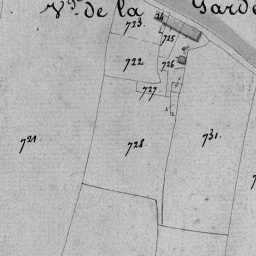 V.ge de la Garde
723
725
722
726
727
721
728
731